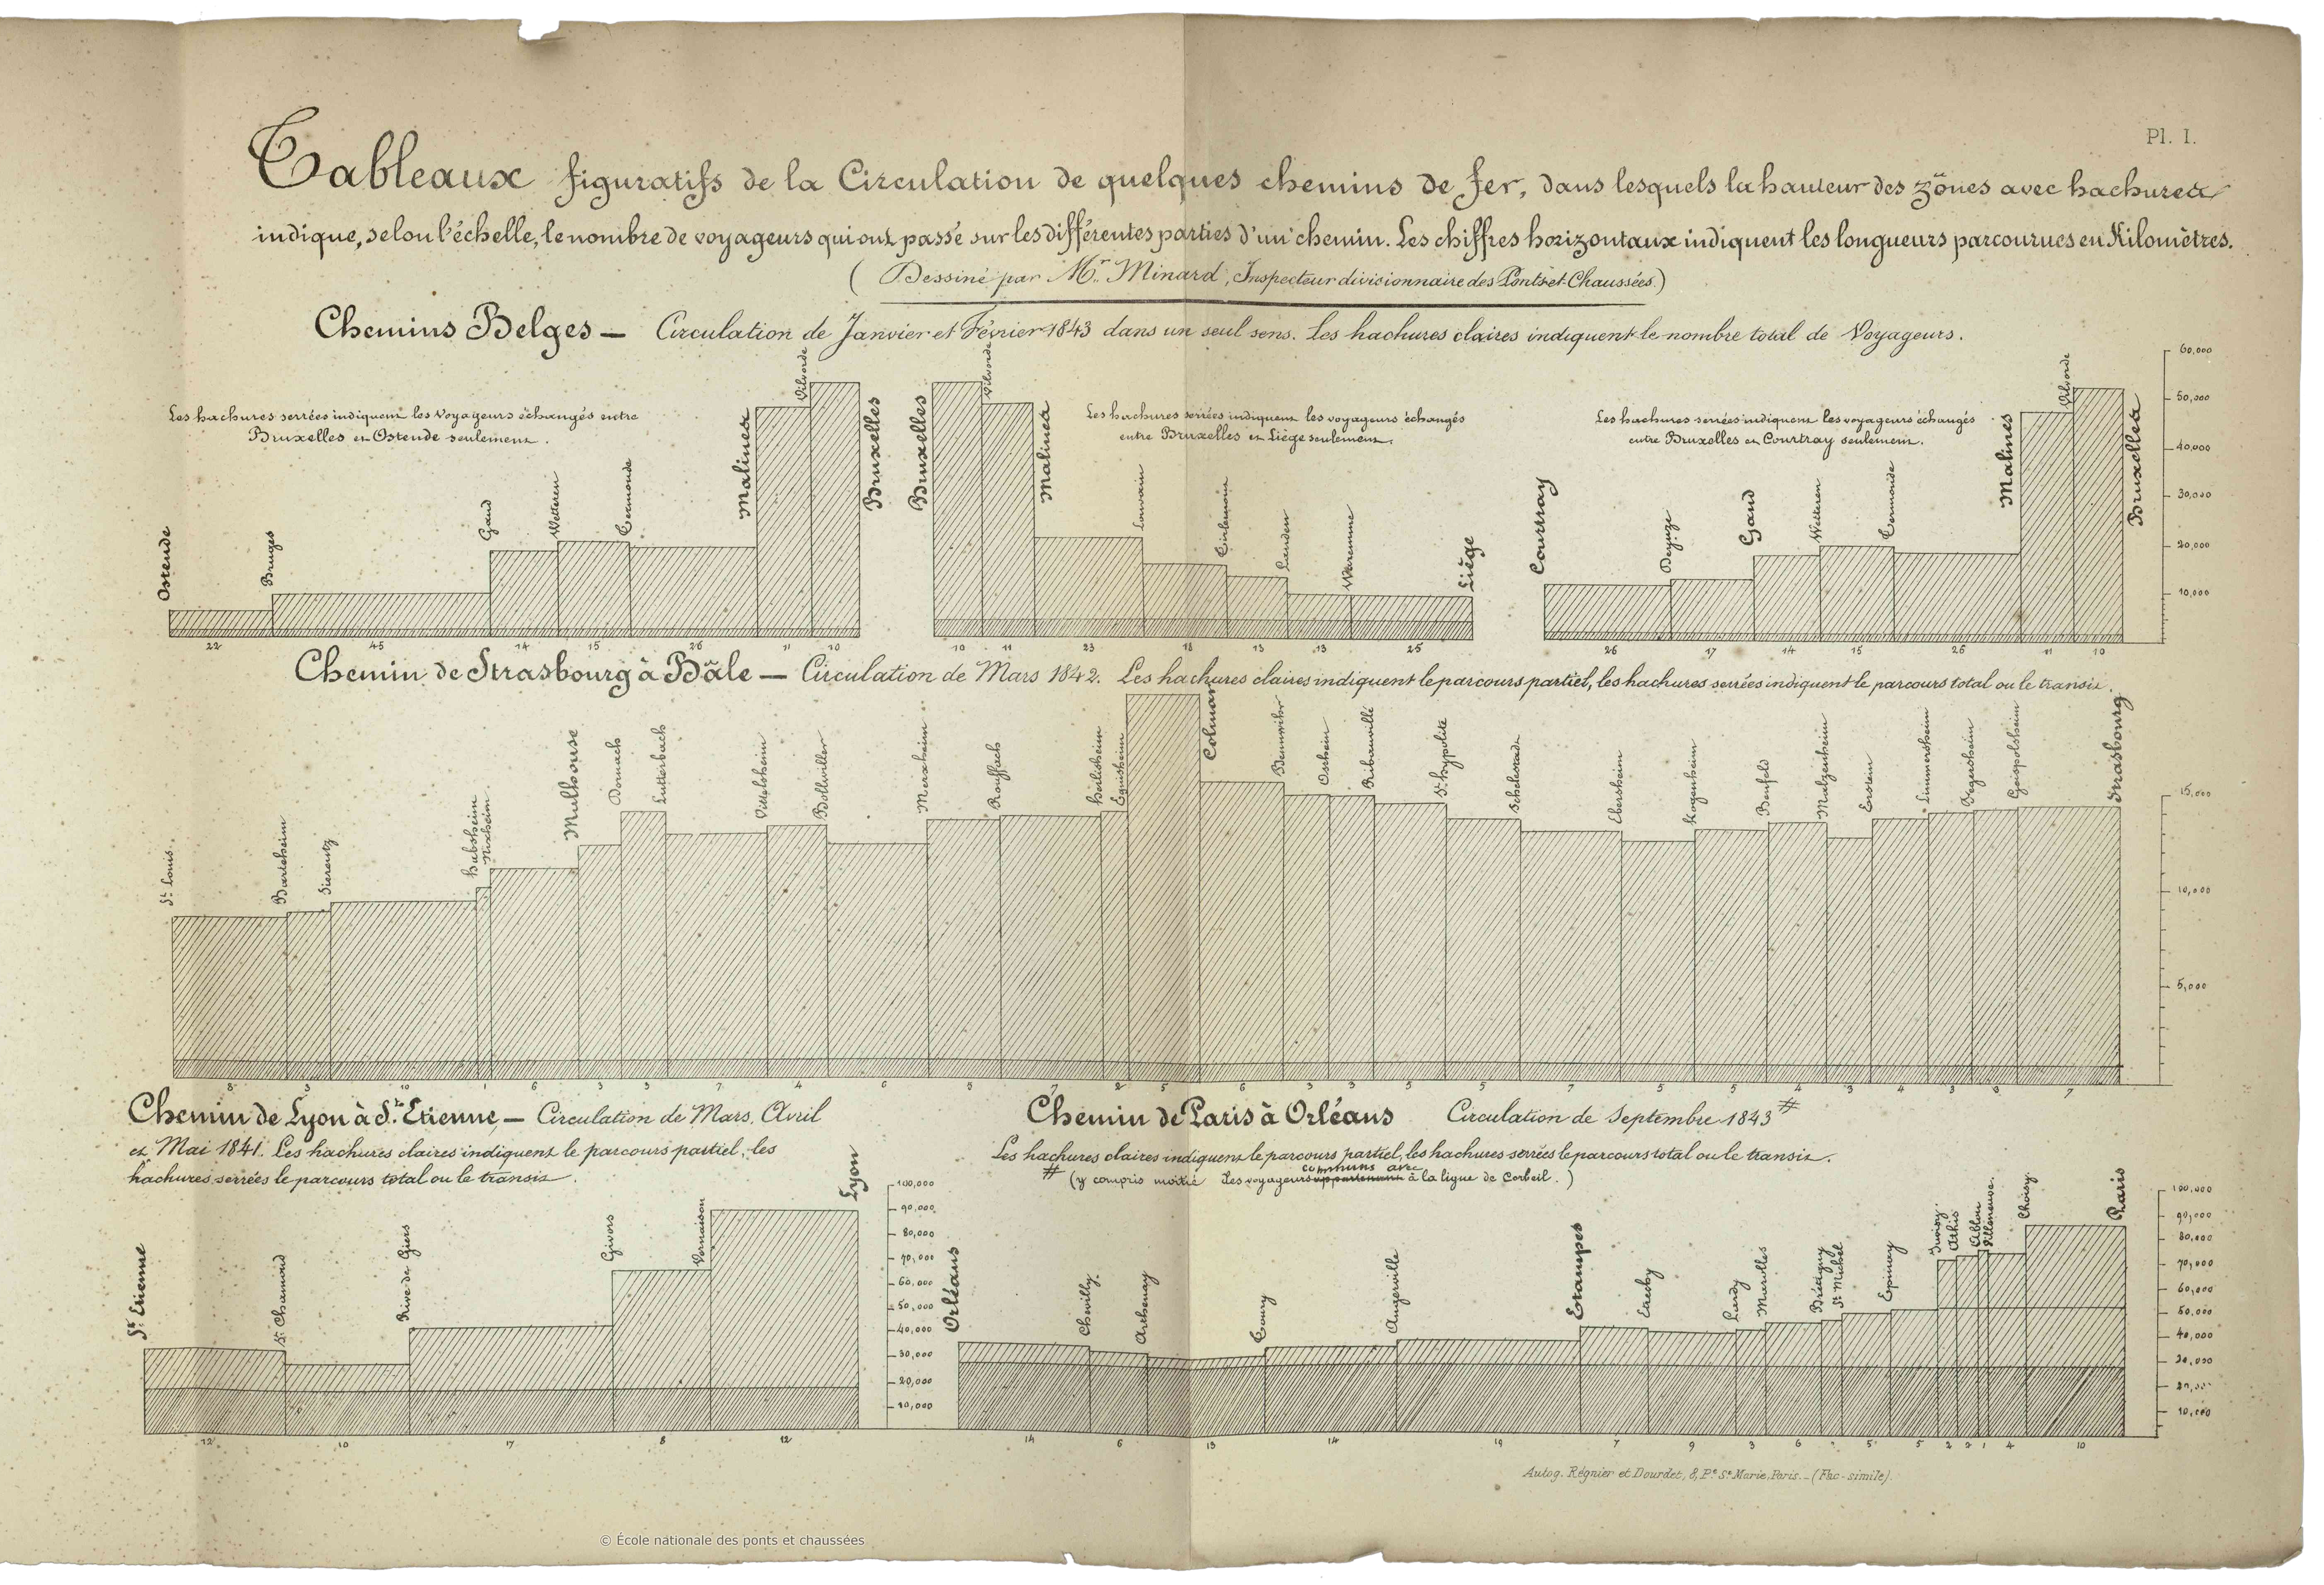 Pl. I.
Tableaux figuratifs de la Circulation de quelques chemins de fer, dans lesquels la hauteur des zônes avec hachures
indique, selon l'échelle, le nombre de voyageurs qui ont passé sur les différentes parties d'un chemin. Les chiffres horizontaux indiquent les longueurs parcourues en Kilomètres.
(Dessiné par Mr. Minard, Inspecteur divisionnaire des Ponts et Chaussées.)
Chemins Belges — Circulation de Janvier et Février 1843 dans un seul sens. Les hachures claires indiquent le nombre total de Voyageurs.
Les hachures serrées indiquent les Voyageurs échangés entre
Bruxelles et Ostende seulement.
Ostende
Bruges
Gand
Wetteren
Termonde
Malines
Vilvorde
Bruxelles
22 45 14 15 26 11 10
Les hachures serrées indiquent les voyageurs échangés
entre Bruxelles et Liège seulement.
Bruxelles
Vilvorde
Malines
Louvain
Tirlemont
Landen
Waremme
Liège
10 11 23 18 13 13 25
Les hachures serrées indiquent les voyageurs échangés
entre Bruxelles et Courtray seulement.
Courtray
Deynze
Gand
Wetteren
Termonde
Malines
Vilvorde
Bruxelles
26 17 14 15 26 11 10
60,000
50,000
40,000
30,000
20,000
10,000
Chemin de Strasbourg à Bâle — Circulation de Mars 1842. Les hachures claires indiquent le parcours partiel, les hachures serrées indiquent le parcours total ou le transit.
St. Louis
Bartenheim
Sierentz
Habsheim
Rixheim
Mulhouse
Dornach
Lutterbach
Bollwiller
Merxheim
Rouffach
Herlisheim
Egnisheim
Colmar
Bennwihr
Ostheim
Ribauvillé
St. Hypolite
Schelestadt
Ebersheim
Kogenheim
Benfeld
Matzenheim
Erstein
Limmersheim
Fegersheim
Geispolsheim
Strasbourg
15,000
10,000
5,000
Chemin de Lyon à St. Etienne — Circulation de Mars, Avril
et Mai 1841. Les hachures claires indiquent le parcours partiel, les
hachures serrées le parcours total ou le transit.
St. Etienne
St. Chamond
Rive de Giers
Givors
Vernaison
Lyon
12 10 17 8 12
100,000
90,000
80,000
70,000
60,000
50,000
40,000
30,000
20,000
10,000
Chemin de Paris à Orléans Circulation de Septembre 1843 #
Les hachures claires indiquent le parcours partiel, les hachures serrées le parcours total ou le transit.
# (y compris moitié des voyageurs communs avec à la ligne de Corbeil.)
Orléans
Chevilly
Arthenay
Toury
Angerville
Etampes
Lardy
Marolles
Brétigny
St. Michel
Epinay
Juvisy
Athis
Ablon
Villeneuve
Choisy
Paris
14 6 13 14 19 7 9 3 6 5 5 2 2 1 4 10
100,000
90,000
80,000
70,000
60,000
50,000
40,000
30,000
20,000
10,000
Autog. Régnier et Dourdet, 8, Pe. Ste Marie, Paris. _ (Fac-simile).
© École nationale des ponts et chaussées